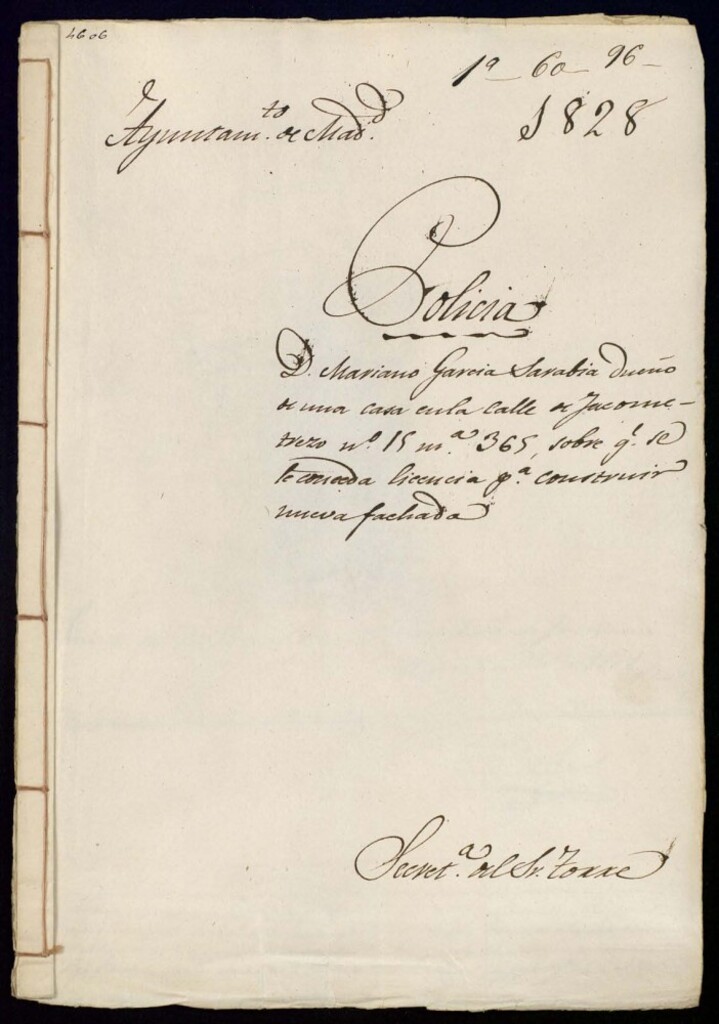 4606
1ª - 60 - 96 -
Ayuntam.to de Mad.d
1828
Policia
D. Mariano Garcia Sarabia dueño
de una casa en la calle de Jacome-
trezo nº 15 m.ª 365, sobre q.e se
le conceda licencia p.ª construir
nueva fachada
Secret.ª del Sr. Torre